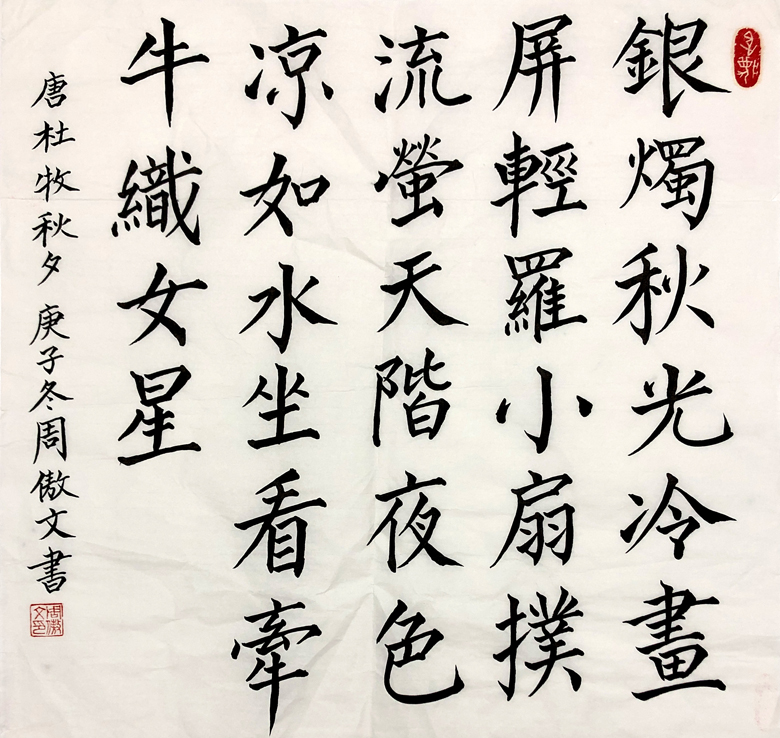 銀燭秋光冷畫
屏輕羅小扇撲
流螢天階夜色
凉如水坐看牽
牛織女星
唐杜牧秋夕 庚子冬周傲文書
周傲文印